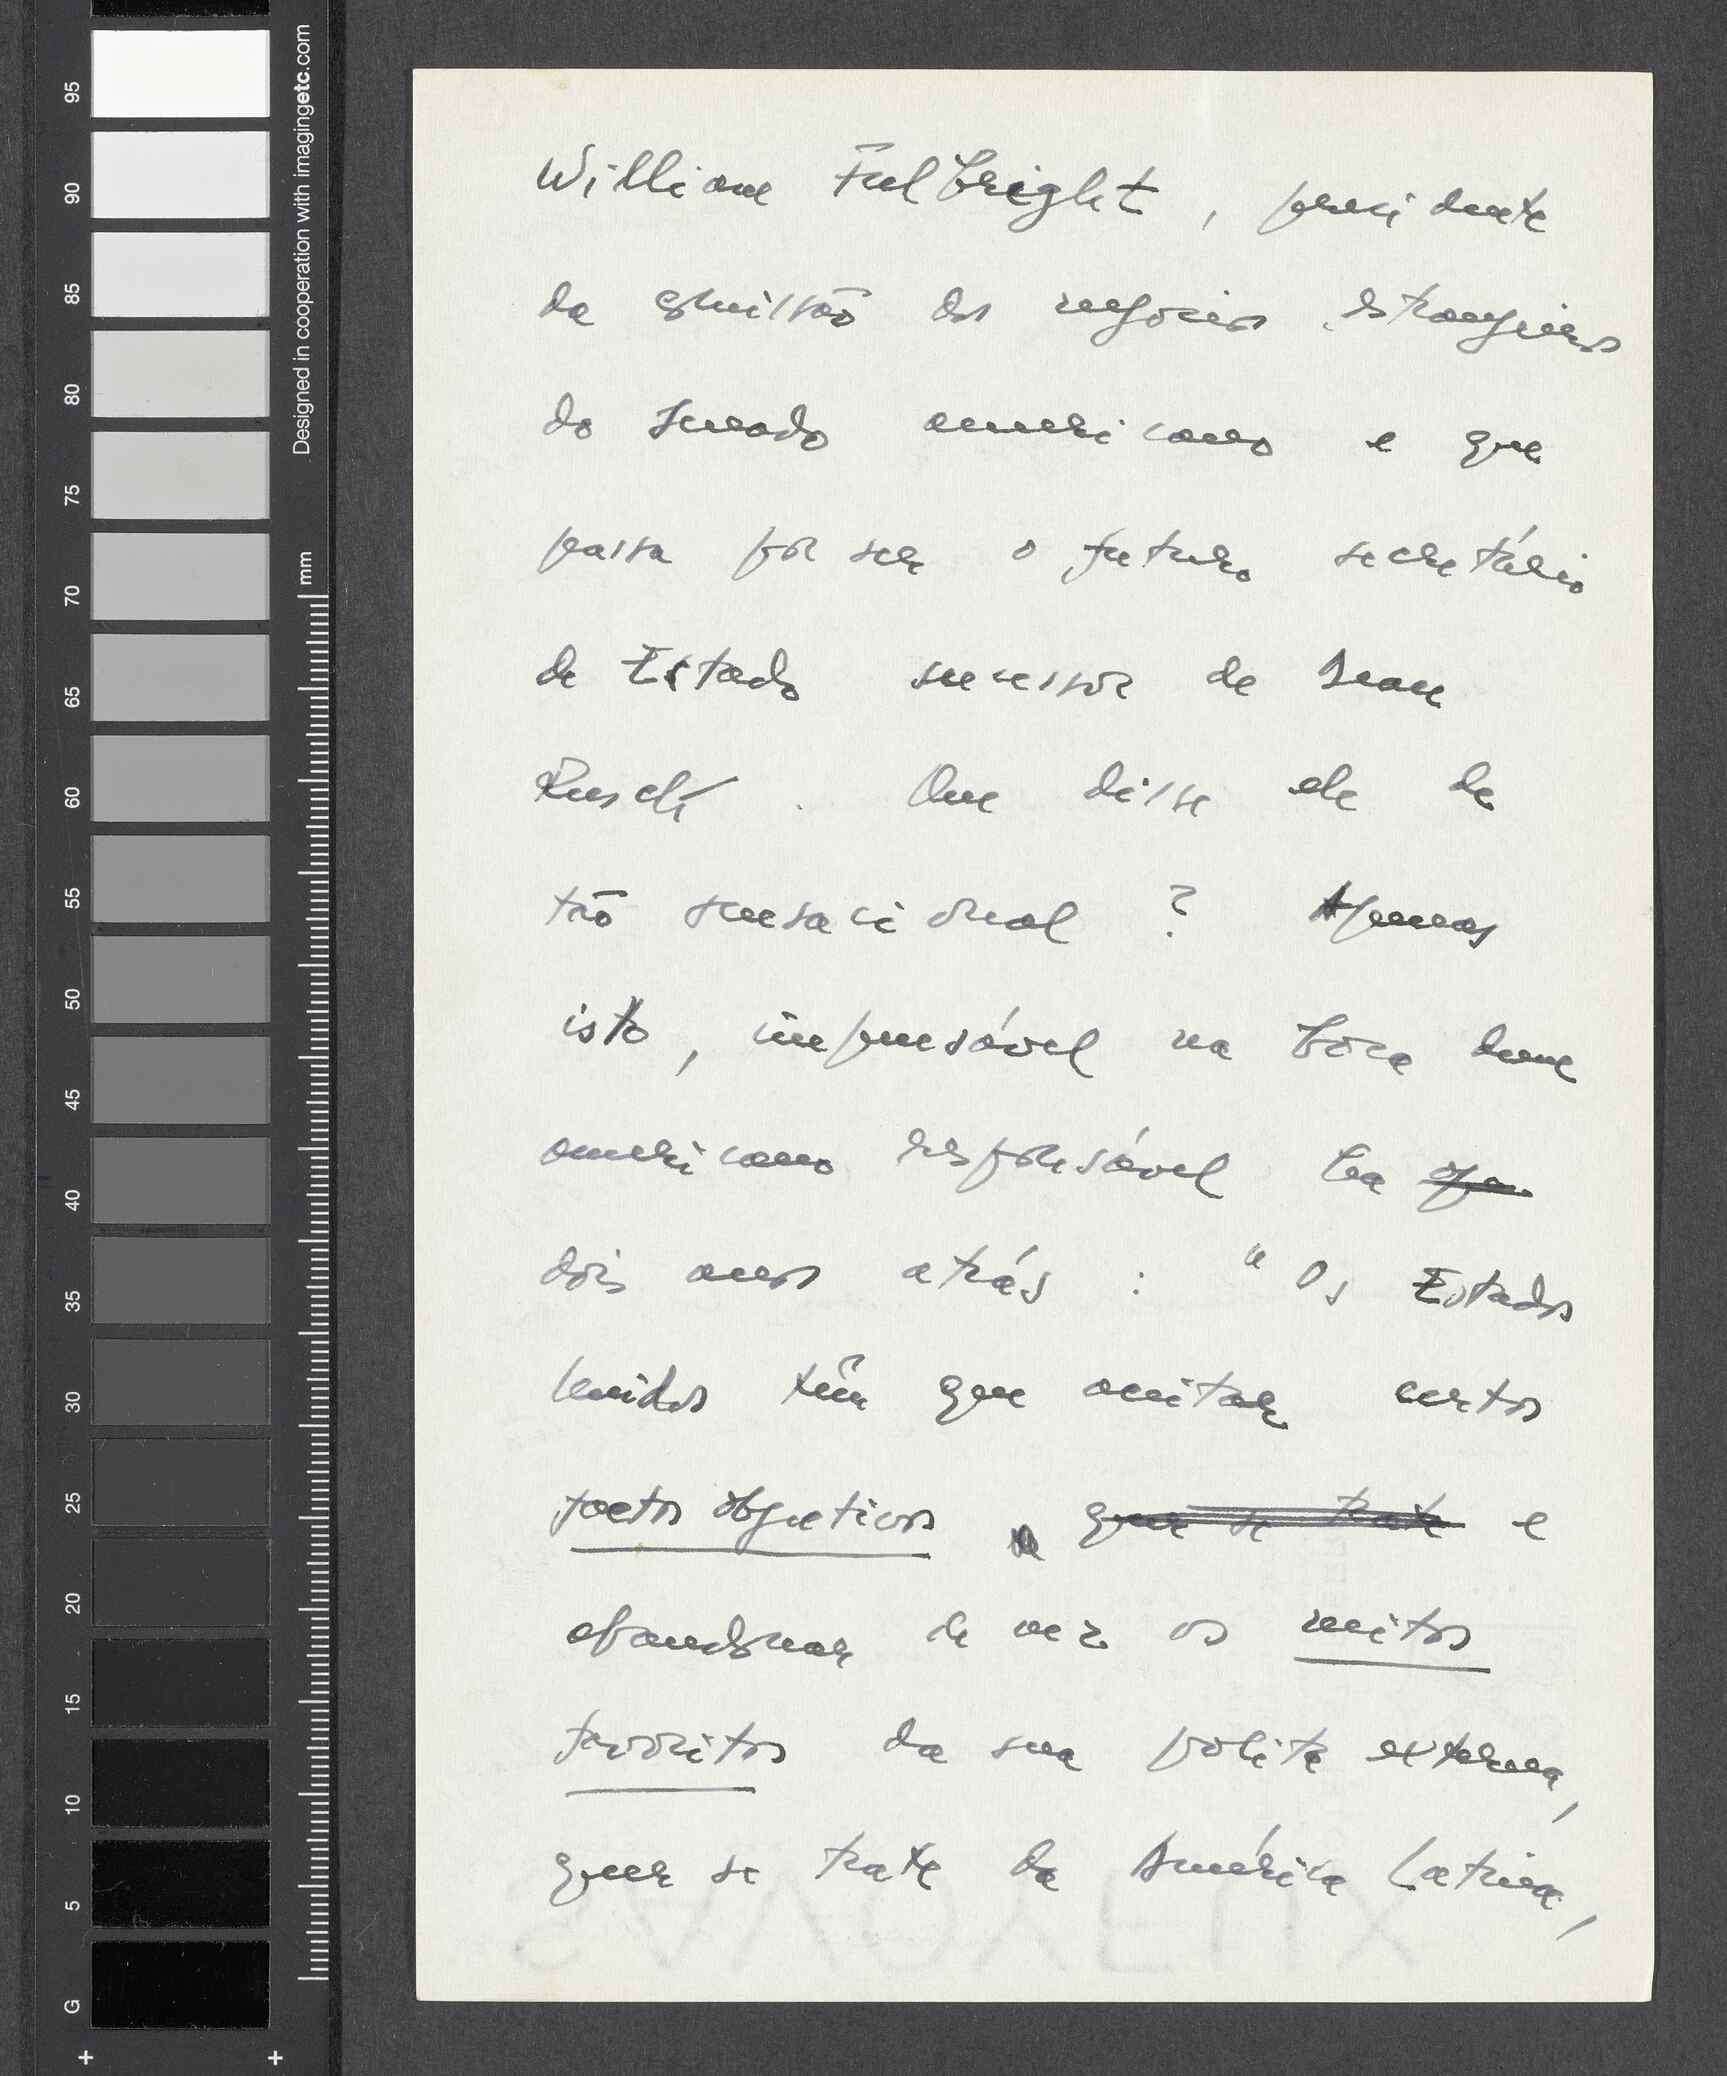 William Fulbright, presidente
da comissão dos negócios estrangeiros
do Senado americano e que
passa por ser o futuro secretário
de Estado sucessor de Dean
Rusck. Que disse ele de
tão sensacional? Apenas
isto, impensável na boca dum
americano responsável há
dois anos atrás: "Os Estados
Unidos têm que aceitar certos
factos objectivos quer se trate e
abandonar de vez os mitos
favoritos da sua polita externa,
quer se trate da América Latina,
95
90
85
80
75
70
65
60
55
50
45
40
35
30
25
20
15
10
5
G
Designed in cooperation with imagingetc.com
mm